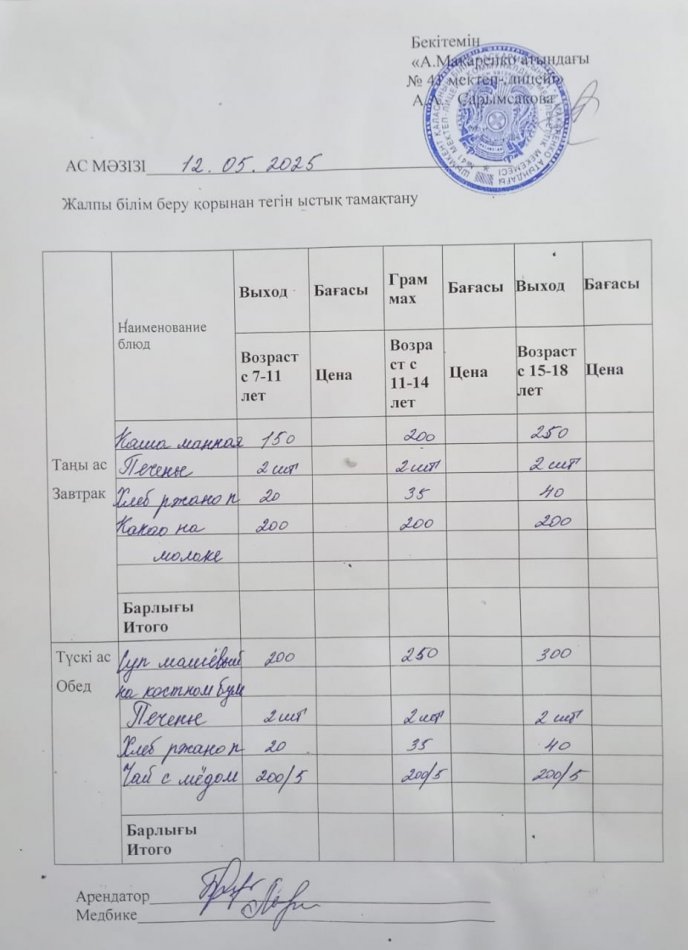 Бекітемін
«А.Макаренко атындағы
№ 41 мектеп-лицейі»
А. Сарымсакова
АС МӘЗІЗІ 12.05.2025
Жалпы білім беру қорынан тегін ыстық тамақтану
Наименование блюд
Выход Бағасы Грам мах Бағасы Выход Бағасы
Возраст с 7-11 лет Цена Возра ст с 11-14 лет Цена Возраст с 15-18 лет Цена
Таңы ас
Завтрак
Каша манная 150 200 250
Печенье 2 шт 2 шт 2 шт
Хлеб ржано п 20 35 40
Какао на 200 200 200
молоке
Барлығы
Итого
Түскі ас
Обед
Суп машевый 200 250 300
на костном бул
Печенье 2 шт 2 шт 2 шт
Хлеб ржано п 20 35 40
Чай с мёдом 200/5 200/5 200/5
Барлығы
Итого
Арендатор
Медбике